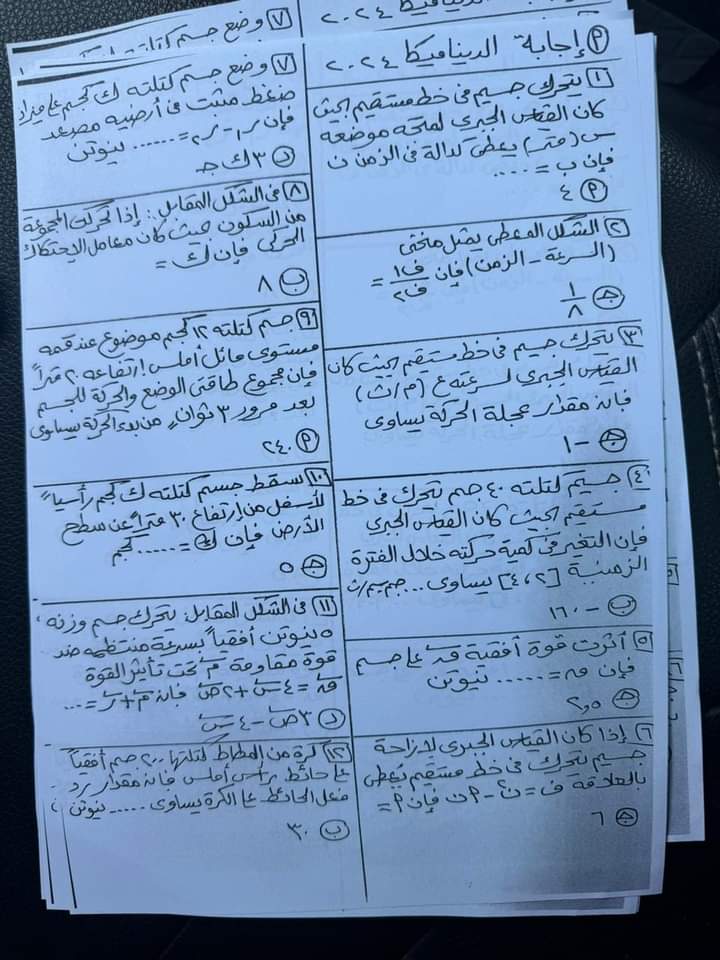 ٧ وضع جسم كتلته
٢٠٢٤
م إجابة الديناميكا ٢٠٢٤
١ يتحرك جسيم في خط مستقيم بحيث
كان القياس الجبري لمتجه موضعه
س (متر) يعطى كدالة في الزمن ن
فإن ب = ....
م ٤
٢ الشكل المعطى يمثل منحنى
(السرعة - الزمن) فإن ف١/ف٢ =
جـ ١/٨
٣ يتحرك جسيم في خط مستقيم بحيث كان
القياس الجبري لسرعته ع (م/ث)
فإن مقدار عجلة الحركة يساوى
جـ -١
٤ جسيم كتلته ٤٠ جم يتحرك في خط
مستقيم بحيث كان القياس الجبري
فإن التغير في كمية حركته خلال الفترة
الزمنية [٢،٤] يساوى ... جم.سم/ث
ب -١٦٠
٥ أثرت قوة أفقية ق على جسم
فإن ق = ..... نيوتن
جـ ٢,٥
٦ إذا كان القياس الجبرى لإزاحة
جسيم يتحرك في خط مستقيم يُعطى
بالعلاقة ف = ن² - م ن فإن م =
جـ ٦
٧ وضع جسم كتلته ك كجم على ميزان
ضغط مثبت في أرضيه مصعد
فإن ر١ - ر٢ = ...... نيوتن
د ٣ ك جـ
٨ في الشكل المقابل: إذا تحركت المجموعة
من السكون حيث كان معامل الاحتكاك
الحركى فإن ك =
ب ٨
٩ جسم كتلته ١٢ كجم موضوع عند قمه
مستوى مائل أملس إرتفاعه ٢٠ متراً
فإن مجموع طاقتى الوضع والحركة للجسم
بعد مرور ٣ ثوان من بدء الحركة يساوى
م ٢٤٠
١٠ سقط جسم كتلته ك كجم رأسياً
لأسفل من إرتفاع ٣٠ متراً عن سطح
الأرض فإن ك = ...... كجم
جـ ٥
١١ في الشكل المقابل: يتحرك جسم وزنه
٥ نيوتن أفقياً بسرعة منتظمه ضد
قوة مقاومة م تحت تأثير القوة
ق = ٤ س + ٢ ص فإن م + ر = ...
د ٣ ص - ٤ س
١٢ كرة من المطاط كتلتها ٢٠٠ جم أفقياً
على حائط رأسى أملس فإن مقدار رد
فعل الحائط على الكرة يساوى ..... نيوتن
ب ٣٠